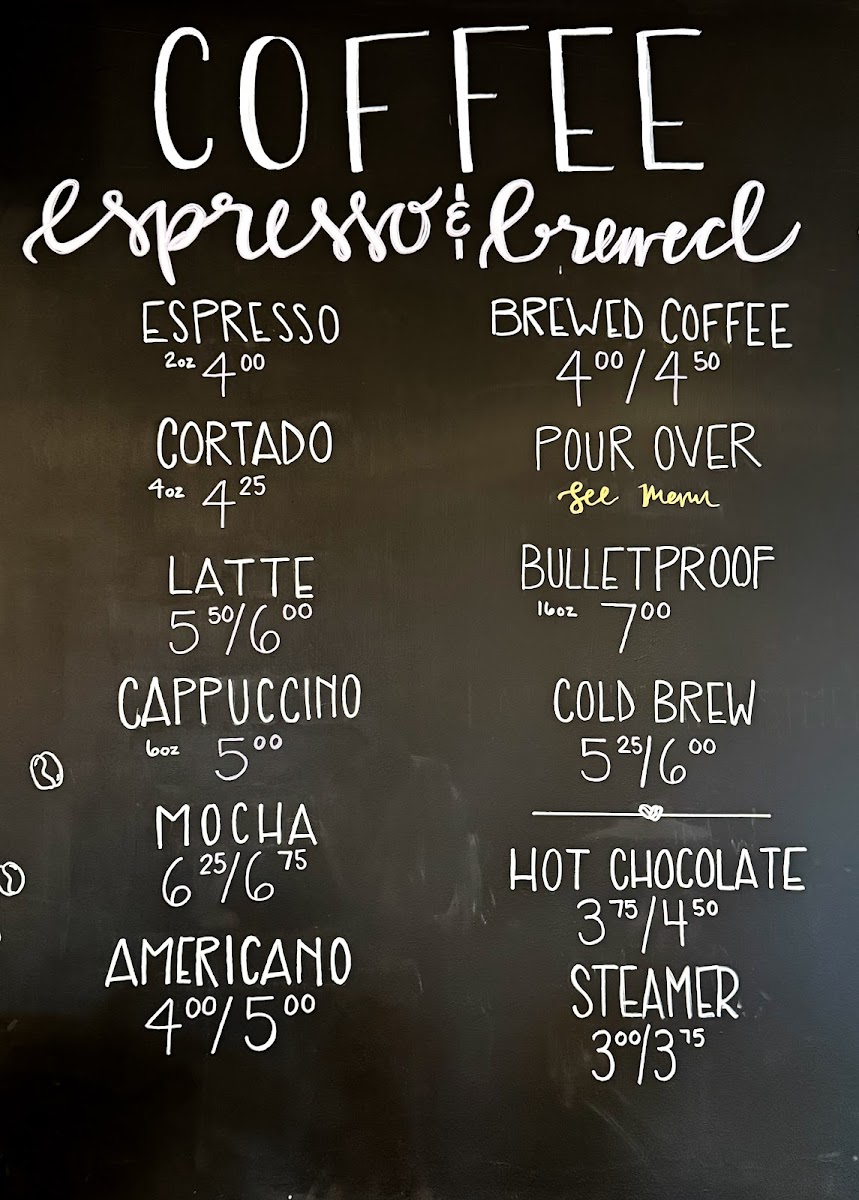 COFFEE
espresso & brewed
ESPRESSO
2oz 4.00
CORTADO
4oz 4.25
LATTE
5.50/6.00
CAPPUCCINO
6oz 5.00
MOCHA
6.25/6.75
AMERICANO
4.00/5.00
BREWED COFFEE
4.00/4.50
POUR OVER
See Menu
BULLETPROOF
16oz 7.00
COLD BREW
5.25/6.00
HOT CHOCOLATE
3.75/4.50
STEAMER
3.00/3.75